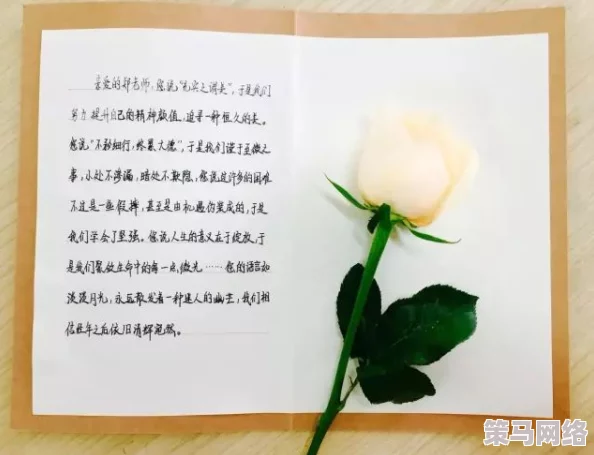 亲爱的郑老师,您说"充实之谓美",于是我们
努力提升自己的精神颜值,追寻一种恒久的美。
您说"不矜细行,终累大德",于是我们谨于至微之
事,小处不渗漏,暗处不欺隐。您说这许多的困难
不过是一些假摔,甚至是由机遇伪装成的,于是
我们学会了坚强。您说人生的意义在于绽放,于
是我们聚敛生命中的每一点微光……您的语言如
淡淡月光,永远散发着一种迷人的幽芒,我们相
信经年之后依旧清辉宛然。
策马网络
www.cemaw.com